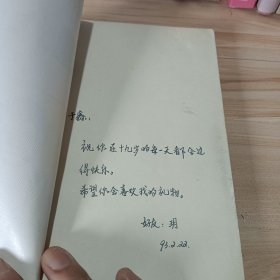 祝你在十九岁的每一天都会过
得快乐。
希望你会喜欢我的礼物。
好友：玥
93.2.22.